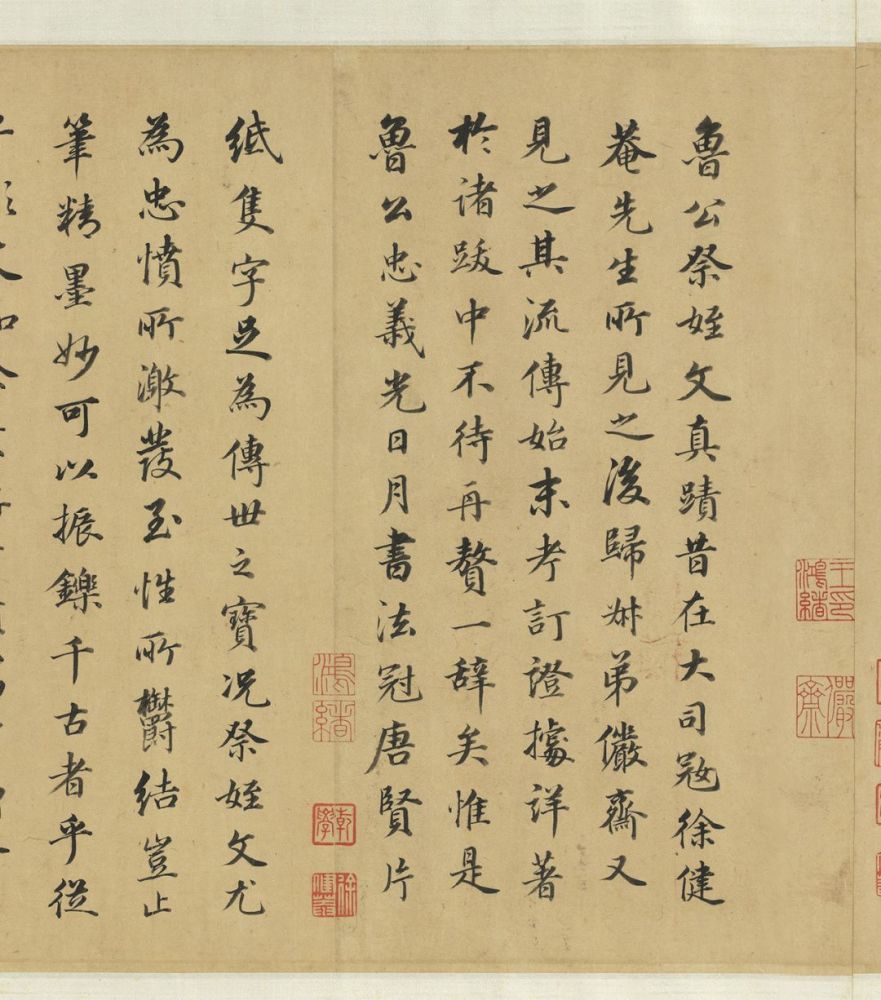 魯公祭姪文真蹟昔在大司宼徐健
菴先生所見之後歸叔弟儼齋又
見之其流傳始末考訂證據詳著
於諸跋中不待再贅一辭矣惟是
魯公忠義光日月書法冠唐賢片
紙隻字足為傳世之寶况祭姪文尤
為忠憤所激發至性所鬱結豈止
筆精墨妙可以振鑠千古者乎從
王印鴻緒
儼齋
鴻緒
乾學
徐健菴